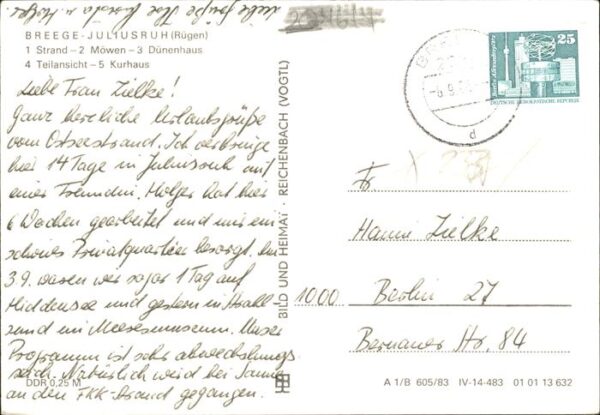 BREEGE-JULIUSRUH (Rügen)
1 Strand – 2 Möwen – 3 Dünenhaus
4 Teilansicht – 5 Kurhaus
Liebe Frau Zielke!
Ganz herzliche Urlaubsgrüße
vom Ostseestrand. Ich verbringe
hier 14 Tage in Juliusruh mit
einer Freundin. Holger hat hier
6 Wochen gearbeitet und uns ein
schönes Privatquartier besorgt. Am
3.9. waren wir sogar 1 Tag auf
Hiddensee und gestern in Stral-
sund im Meeresmuseum. Unser
Programm ist sehr abwechslungs-
reich. Natürlich wird bei Sonne
an den FKK-Strand gegangen.
Liebe Grüße Ihre
u. Holger
DDR 0,25 M
BILD UND HEIMAT · REICHENBACH (VOGTL)
25
DEUTSCHE DEMOKRATISCHE REPUBLIK
d
Fr.
Hanni Zielke
1000 Berlin 27
Bernauer Str. 84
A 1/B 605/83 IV-14-483 01 01 13 632